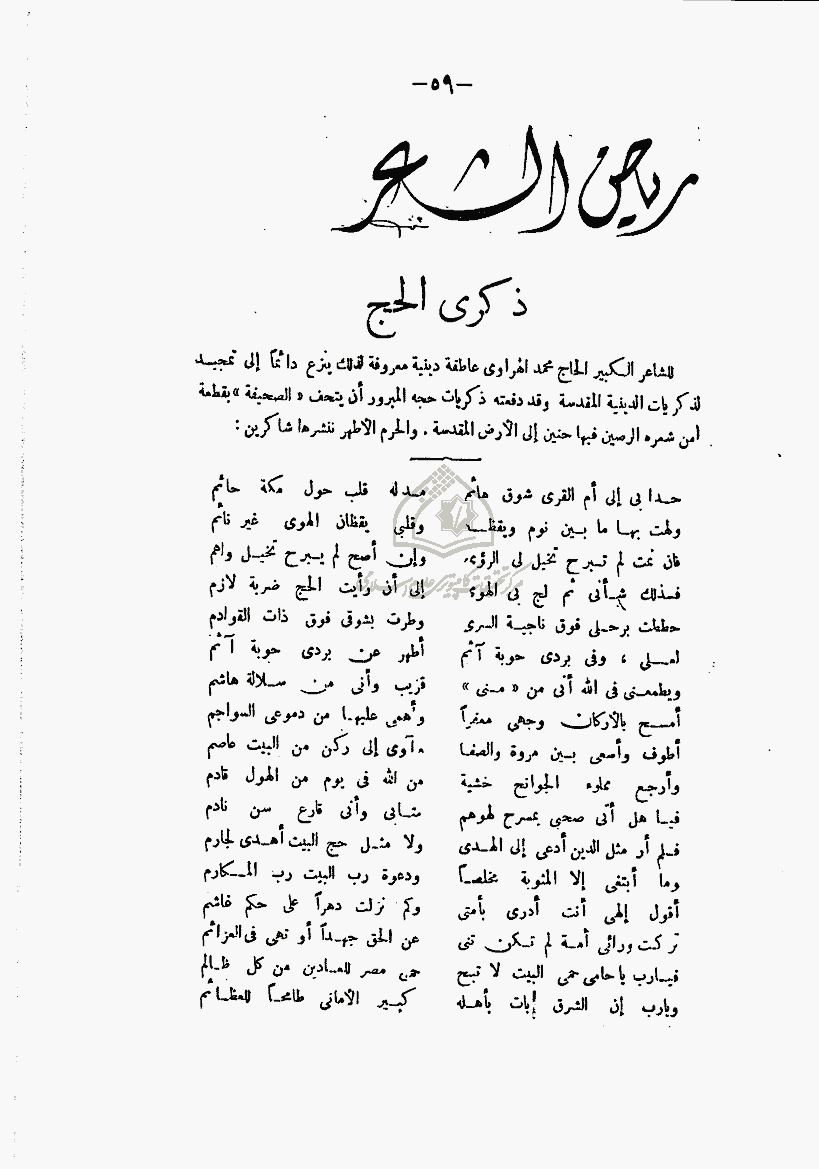 -٥٩-
رياض الشعر
ذكرى الحج
للشاعر الكبير الحاج محمد الهراوى عاطفة دينية معروفة لذلك ينزع دائماً إلى تمجيد
لذكريات الدينية المقدسة وقد دفعته ذكريات حجه المبرور أن يتحف « الصحيفة » بقطعة
من شعره الرصين فيها حنين إلى الأرض المقدسة . والحرم الأطهر ننشرها شاكرين :
حدا بى إلى أم القرى شوق هائم مدله قلب حول مكة حائم
ولهت بها ما بين نوم ويقظـ وقلبى يقظان الهوى غير نائم
فان نمت لم تبرح تخيل لى الرؤى وإن أصح لم يبرح تخيل واهم
فذلك شأنى ثم لج بى الهوى إلى أن رأيت الحج ضربة لازم
حططت برحلى فوق ناجية السرى وطرت بشوقى فوق ذات القوادم
لعلى ، وفى بردى حوبة آثم أطهر عن بردى حوبة آثم
ويطمعنى فى الله أنى من « منى » قريب وأنى من سلالة هاشم
أمسح بالأركان وجهى معفراً وأهمى عليها من دموعى السواجم
أطوف وأسعى بين مروة والصفا وآوى إلى ركن من البيت عاصم
وأرجع مملوء الجوانح خشية من الله فى يوم من الهول قادم
فيا هل أتى صحبى بمسرح لهوهم متابى وأنى قارع سن نادم
فلم أر مثل الدين أدعى إلى الهدى ولا مثل حج البيت أهدى لجارم
وما أبتغى إلا المثوبة مخلصاً ودعوة رب البيت رب المكارم
أقول إلهى أنت أدرى بأمتى وكم نزلت دهراً على حكم غاشم
تركت ورائى أمة لم تكن تنى عن الحق جهداً أو تهى فى العزائم
فيارب يا حامى حمى البيت لا تبح حمى مصر للعادين من كل ظالم
ويارب إن الشرق بات بأهله كبير الأمانى طامحاً للعظائم